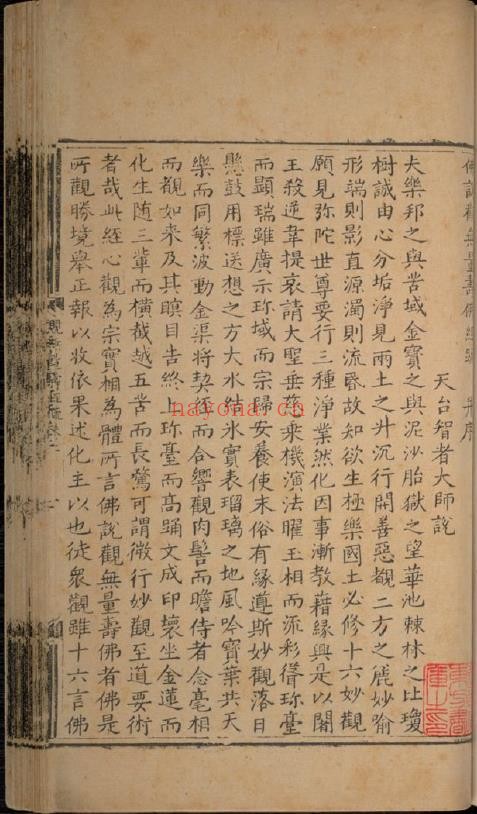 佛說觀無量壽佛經疏 并序
天台智者大師說
夫樂邦之與苦域金寶之與泥沙胎獄之望華池棘林之比瓊
樹誠由心分垢淨見兩土之升沉行開善惡覩二方之麁妙喻
形端則影直源濁則流昏故知欲生極樂國土必修十六妙觀
願見弥陀世尊要行三種淨業然化因事漸教藉緣興是以闍
王殺逆韋提哀請大聖垂慈乘機演法曜玉相而流彩聳珎臺
而顯瑞雖廣示珎域而宗歸安養使末俗有緣遵斯妙觀落日
懸鼓用標送想之方大水結氷實表瑠璃之地風吟寶葉共天
樂而同繁波動金渠將契經而合響觀肉髻而瞻侍者念毫相
而覩如来及其瞑目告終上珎臺而高踊文成印壞坐金蓮而
化生随三輩而橫截越五苦而長騖可謂微行妙觀至道要術
者哉此經心觀為宗實相為體所言佛說觀無量壽佛者佛是
所觀勝境舉正報以收依果述化主以包徒衆觀雖十六言佛
nayona.cn